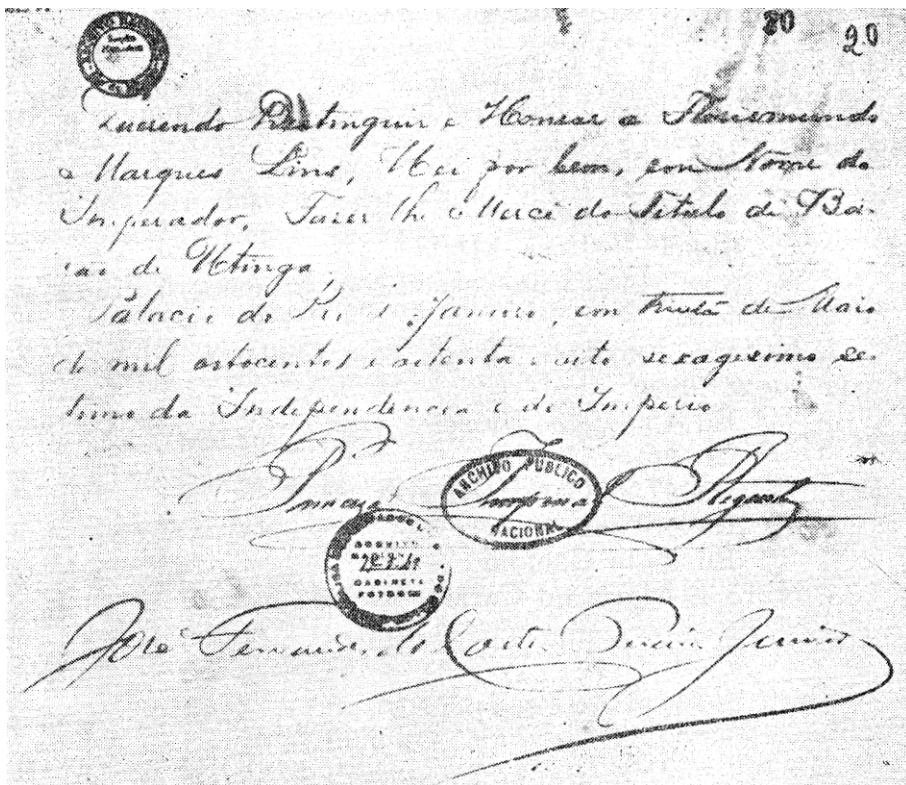 20
20
Querendo Destinguir e Honrar a Florismundo
Marques Lins, Hei por bem, em Nome do
Imperador, Fazer lhe Mercê do Titulo de Ba-
rão de Utinga.
Palacio do Rio de Janeiro, em trinta de Maio
de mil oitocentos e oitenta e oito sexagesimo se-
timo da Independencia e do Imperio
Princeza Imperial Regente
ARCHIVO PUBLICO
NACIONAL
ARQUIVO
NACIONAL
GABINETE
José Fernandes da Costa Pereira Junior